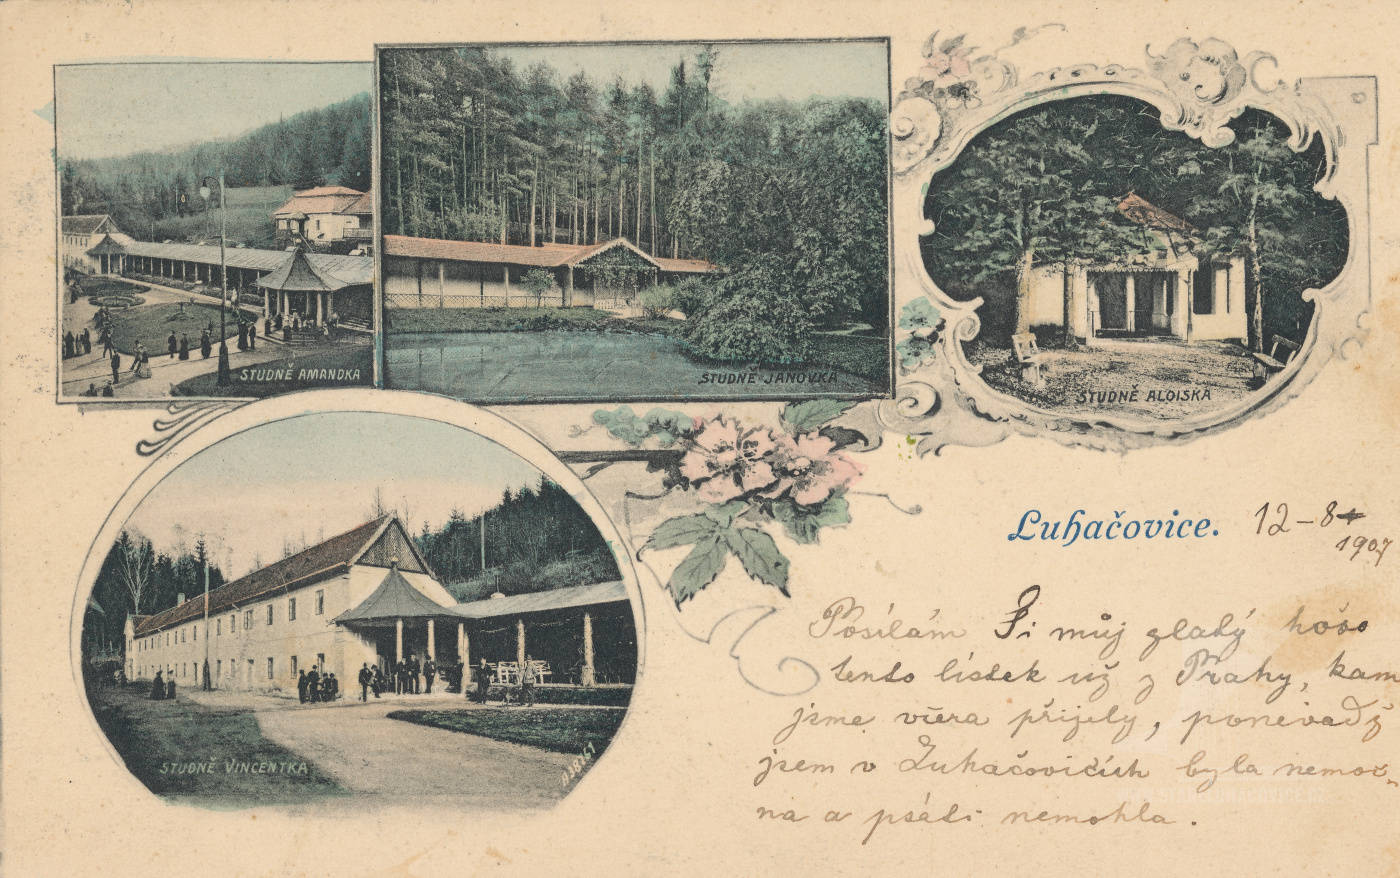 STUDNĚ AMANDKA
STUDNĚ JANOVKA
STUDNĚ ALOISKA
STUDNĚ VINCENTKA
Luhačovice. 12-8
1907
Posílám Ti můj zlatý
tento lístek už z Prahy, kam
jsme včera přijely, poněvadž
jsem v Luhačovicích byla nemoc-
na a psáti nemohla.